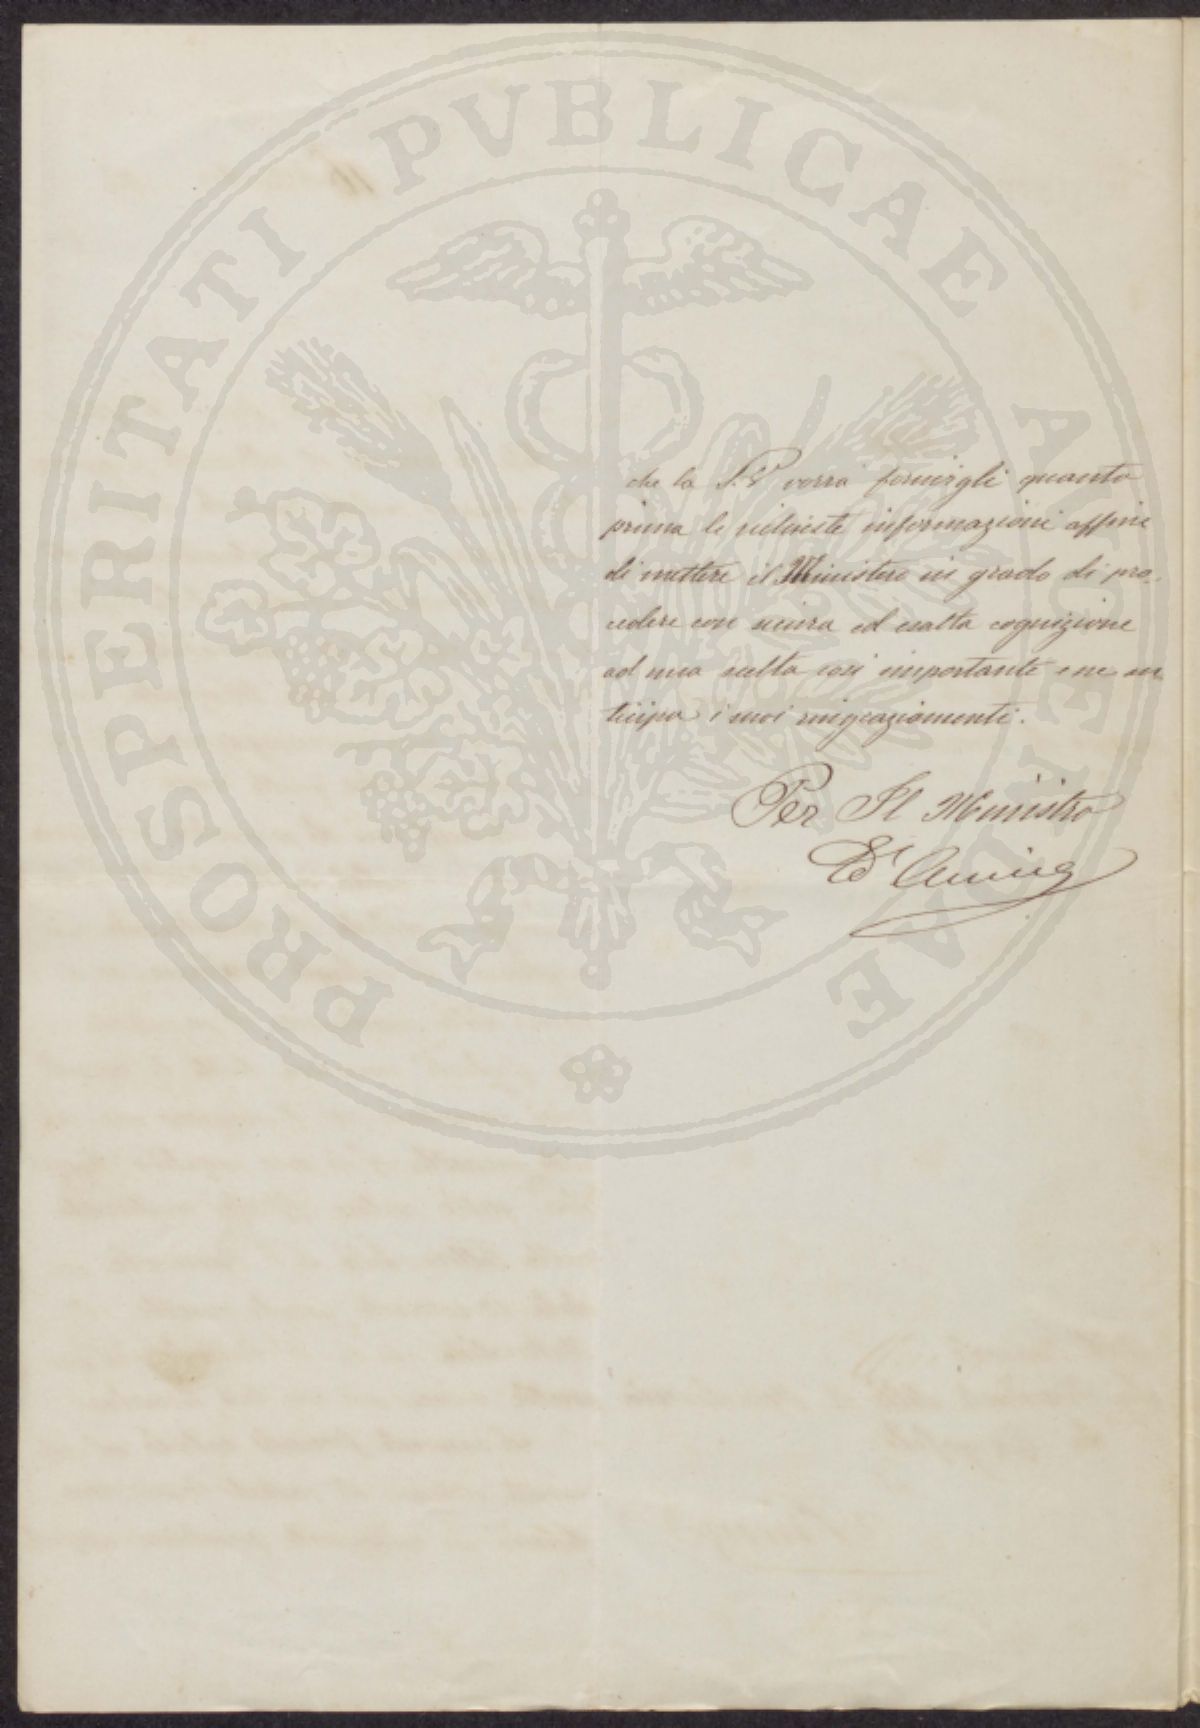 PROSPERITATI PUBLICAE AUGENDAE
che la S.V. vorrà fornirgli quanto
prima le richieste informazioni affine
di mettere il Ministero in grado di pro-
cedere con sicura ed esatta cognizione
ad una scelta così importante e ne an-
ticipa i suoi ringraziamenti.
Per Il Ministro